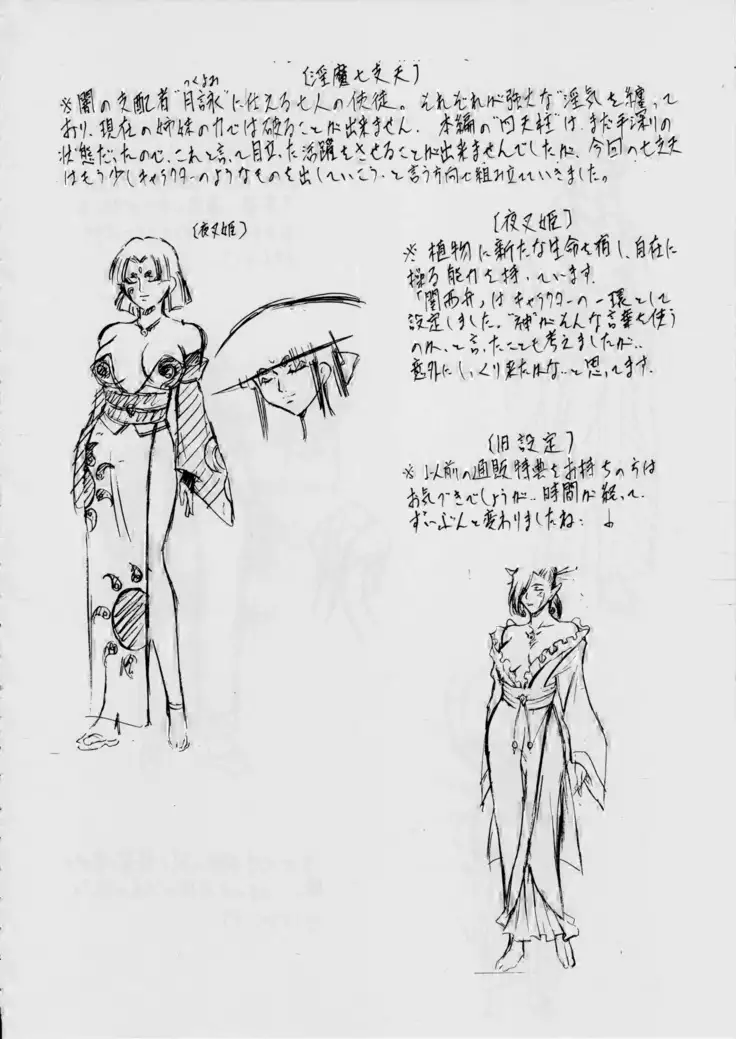 〔淫魔七支天〕
つくよみ
※闇の支配者"月詠"に仕える七人の使徒。それぞれが強大な"淫気"を纏って
おり、現在の姉妹の力では破ることが出来ません。本編の"四天柱"は、まだ手探りの
状態だったので、これと言って目立った活躍をさせることが出来ませんでしたが、今回の七支天
はもう少しキャラクターのようなものを出していこう、と言う方向で組み立てていきました。
〔夜叉姫〕
〔夜叉姫〕
※植物に新たな生命を宿し、自在に
操る能力を持っています。
「関西弁」はキャラクターの一環として
設定しました。"神"がそんな言葉を使う
のか、と言ったことも考えましたが…
意外にしっくり来たかな…と思ってます。
〔旧設定〕
※以前の通販特典をお持ちの方は
お気づきでしょうが…時間が経って
ずいぶんと変わりましたね…♪